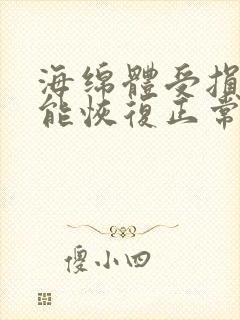 海绵體受損
能恢復正常
傻小四